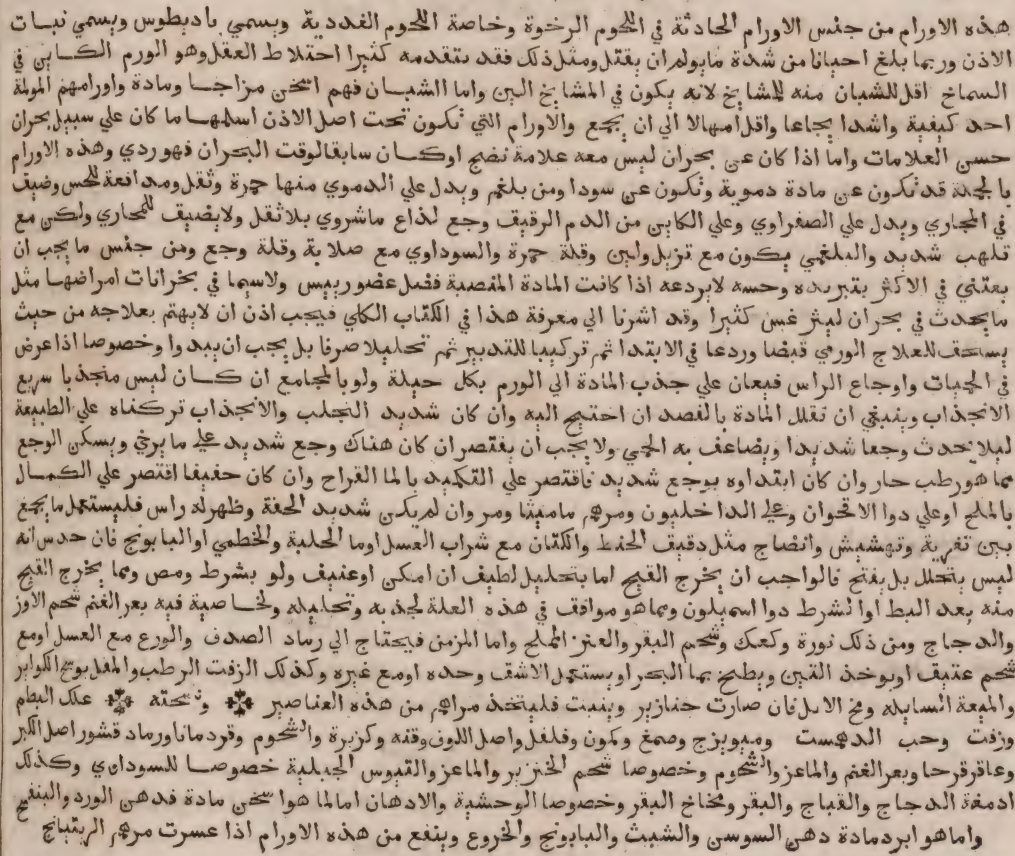 هذه الاورام من جنس الاورام الحادثة في اللحوم الرخوة وخاصة اللحوم الغددية ويسمي باديطوس ويسمي نبات
الاذن وربما بلغ احيانا من شدة ما يولم ان يقتل ومثل ذلك فقد يتقدمه كثيرا اختلاط العقل وهو الورم الكاين في
السماخ اقل للشبان منه للمشايخ لانه يكون في المشايخ الين واما الشبان فهم اسخن مزاجا ومادة واورامهم المولمة
احد كيفية واشد ايجاعا واقل امهالا الي ان يجمع والاورام التي تكون تحت اصل الاذن اسلمها ما كان علي سبيل بحران
حسن العلامات واما اذا كان عن بحران ليس معه علامة نضج او كان سابقا لوقت البحران فهو ردي وهذه الاورام
بالجملة قد تكون عن مادة دموية وتكون عن سودا ومن بلغم ويدل علي الدموي منها حمرة وثقل ومدافعة للحس وضيق
في المجاري ويدل علي الصفراوي وعلي الكاين من الدم الرقيق وجع لذاع ماشروي بلا ثقل ولا يضيق للمجاري ولكن مع
تلهب شديد والبلغمي يكون مع تزيل ولين وقلة حمرة والسوداوي مع صلابة وقلة وجع ومن جنس ما يجب ان
يعتني في الاكثر بتبريده وحسه لا بردعه اذا كانت المادة المنصبة فضل عضو رييس ولا سيما في بخرانات امراضها مثل
ما يحدث في بحران ليثرغس كثيرا وقد اشرنا الي معرفة هذا في الكتاب الكلي فيجب اذن ان لا يهتم بعلاجه من حيث
يستحق للعلاج الورمي قبضا وردعا في الابتدا ثم تركيبا للتدبير ثم تحليلا صرفا بل يجب ان يبدوا وخصوصا اذا عرض
في الحميات واوجاع الراس فيعان علي جذب المادة الي الورم بكل حيلة ولو بالمحاجم ان كان ليس منجذبا سريع
الانجذاب وينبغي ان تقلل المادة بالفصد ان احتيج اليه وان كان شديد التحلب والانجذاب تركناه علي الطبيعة
ليلا يحدث وجعا شديدا ويضاعف به الحمي ولا يجب ان يقتصر ان كان هناك وجع شديد علي ما يرخي ويسكن الوجع
مما هو رطب حار وان كان ابتداوه بوجع شديد فاقتصر علي التكميد بالما القراح وان كان خفيفا اقتصر علي الكمال
بالملح او علي دوا الاقحوان وعلي الداخليون ومرهم ماميثا ومر وان لم يكن شديد الخفة وظهر له راس فليستعمل ما يجمع
بين تغرية وتهشيش وانضاج مثل دقيق الحنطة والكتان مع شراب العسل او ما الحلبة والخطمي او البابونج فان حدس انه
ليس يتحلل بل يفتح فالواجب ان يخرج القيح اما بتحليل لطيف ان امكن او عنيف ولو بشرط ومص ومما يخرج القيح
منه بعد البط او الشرط دوا اسميلون ومما هو موافق في هذه العلة لجذبه وتحليله ولخاصية فيه بعر الغنم شحم الاوز
والدجاج ومن ذلك نورة وكعك وشحم البقر والعنز المملح واما المزمن فيحتاج الي رماد الصدف والورع مع العسل او مع
شحم عتيق او يوخذ التين ويطبخ بما البحر او يستعمل الاشق وحده او مع غيره وكذلك الزفت الرطب والمقل بوسخ الكواير
والميعة السايله ومخ الايل فان صارت خنازير وينبت فليتخذ مراهم من هذه العناصير ونسخته علك البطم
وزفت وحب الدهمست وميويزج وصمغ وكمون وفلفل واصل اللوف وقنه وكزبرة والشحوم وقردمانا ورماد قشور اصل الكبر
وعاقرقرحا وبعر الغنم والماعز والشحوم وخصوصا شحم الخنزير والماعز والتيوس الجبلية خصوصا للسوداوي وكذلك
ادمغة الدجاج والقباج والبقر ومخاخ البقر وخصوصا الوحشية والادهان اما لما هو اسخن مادة فدهن الورد والبنفسج
واما هو ابرد مادة دهن السوسن والشبث والبابونج والخروع وينفع من هذه الاورام اذا عسرت مرهم الريتيانج